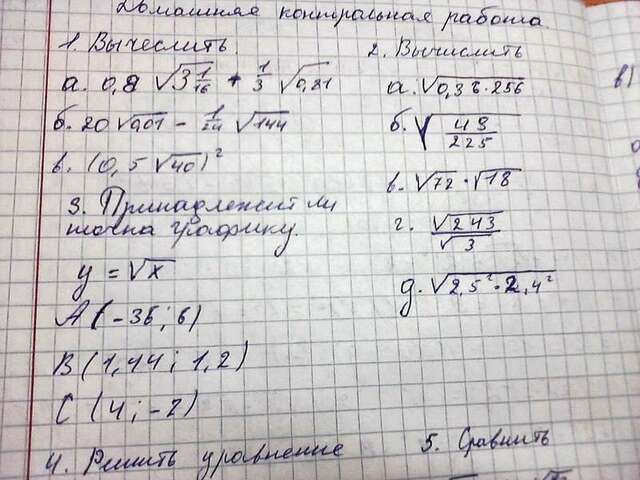 Домашняя контрольная работа.
1. Вычеслить
а. 0,8 √3 1/16 + 1/3 √0,81
б. 20 √0,01 - 1/24 √144
в. (0,5 √40)²
3. Принадлежит ли
точка графику.
y = √x
A (-36; 6)
B (1,44; 1,2)
C (4; -2)
4. Решить уравнение
2. Вычислить
а. √0,36·256
б. √49/225
в. √72 · √18
г. √243/√3
д. √2,5²·2,4²
5. Сравнить
в)